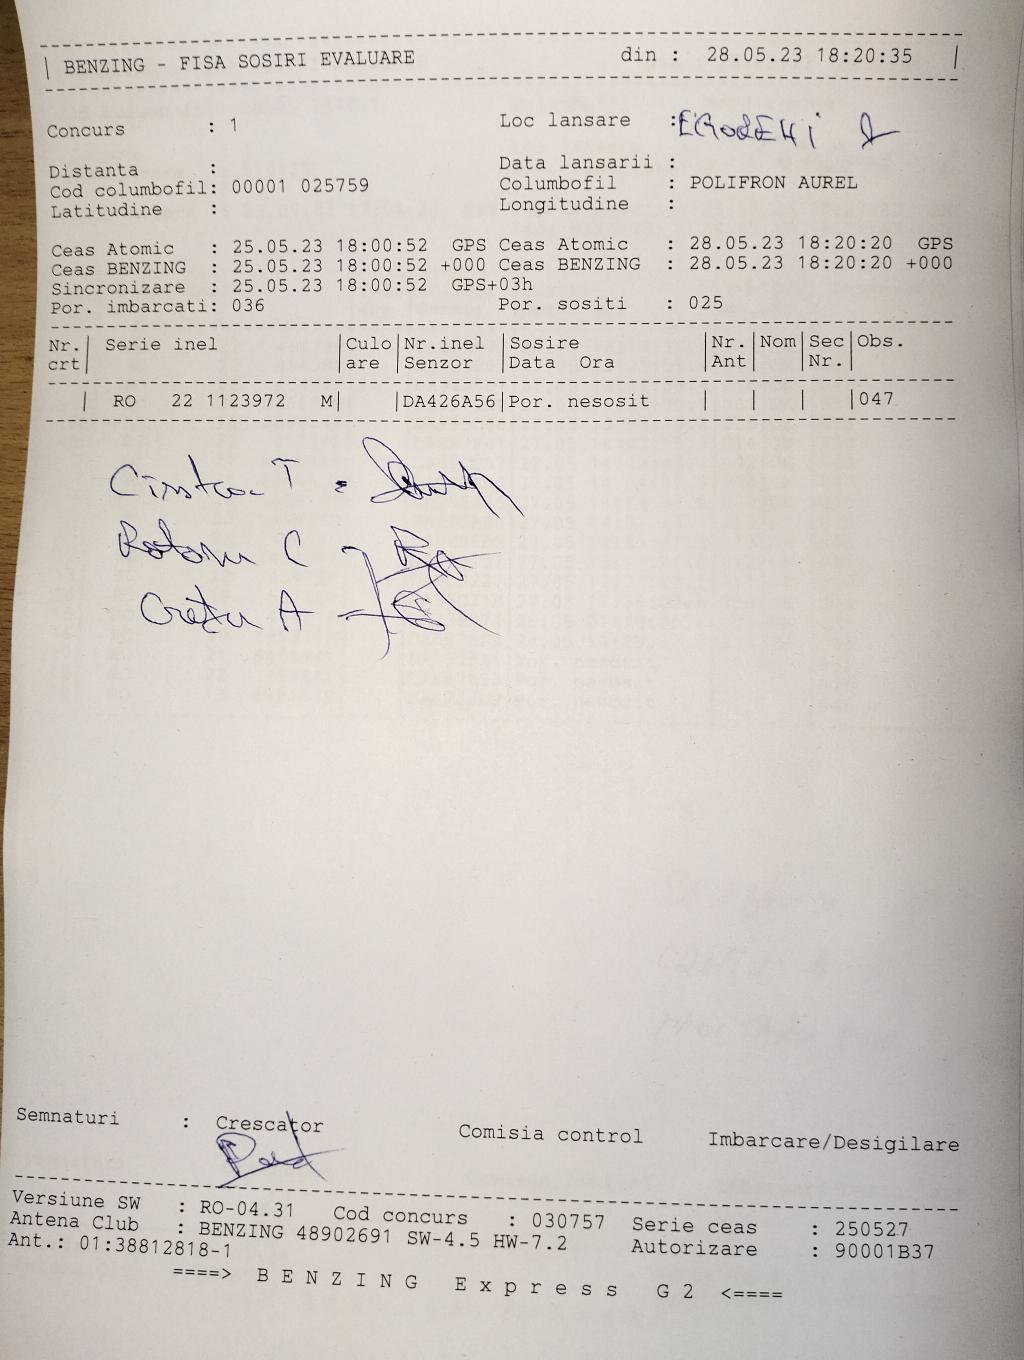 BENZING - FISA SOSIRI EVALUARE din : 28.05.23 18:20:35
Concurs : 1 Loc lansare :
Distanta : Data lansarii :
Cod columbofil: 00001 025759 Columbofil : POLIFRON AUREL
Latitudine : Longitudine :
Ceas Atomic : 25.05.23 18:00:52 GPS Ceas Atomic : 28.05.23 18:20:20 GPS
Ceas BENZING : 25.05.23 18:00:52 +000 Ceas BENZING : 28.05.23 18:20:20 +000
Sincronizare : 25.05.23 18:00:52 GPS+03h
Por. imbarcati: 036 Por. sositi : 025
Nr. Serie inel Culo Nr.inel Sosire Nr. Nom Sec Obs.
crt are Senzor Data Ora Ant Nr.
RO 22 1123972 M DA426A56 Por. nesosit 047
T =
C
A =
Semnaturi : Crescator Comisia control Imbarcare/Desigilare
Versiune SW : RO-04.31 Cod concurs : 030757 Serie ceas : 250527
Antena Club : BENZING 48902691 SW-4.5 HW-7.2 Autorizare : 90001B37
Ant.: 01:38812818-1
====> B E N Z I N G E x p r e s s G 2 <====